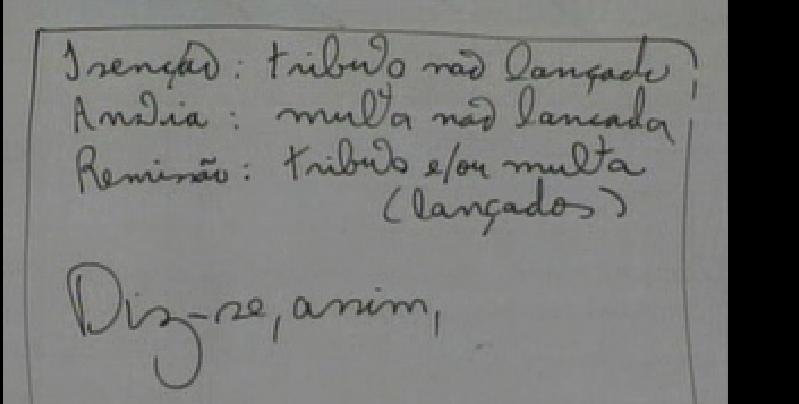 Isenção: tributo não lançado
Anistia: multa não lançada
Remissão: tributo e/ou multa
(lançados)
Diz-se, assim,